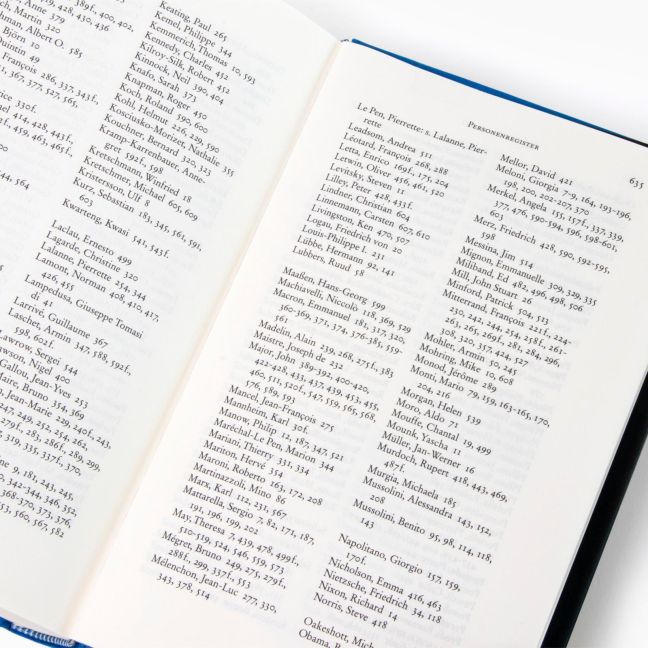 389, 400, 402,
419, 428, 430, 436
ach, Martin 379
kman, Albert O. 585
Björn 10
Quintin 49
François 286, 337, 343f.,
361, 367, 377, 527, 565,
Keating, Paul 265
Kemel, Philippe 344
Kemmerich, Thomas 10, 593
Kennedy, Charles 452
Kilroy-Silk, Robert 452
Kinnock, Neil 390, 404
Knafo, Sarah 373
Knapman, Roger 450
Koch, Roland 590, 600
Kohl, Helmut 226, 229, 590
Kosciusko-Morizet, Nathalie 355
Kouchner, Bernard 320, 323
Kramp-Karrenbauer, Anne-
gret 592f., 598
Kretschmann, Winfried 18
Kretschmer, Michael 605, 609
Kristersson, Ulf 8
Kurz, Sebastian 183, 345, 561, 591,
603
Kwarteng, Kwasi 541, 543f.
Laclau, Ernesto 499
Lagarde, Christine 320
Lalanne, Pierrette 254, 344
Lamont, Norman 408, 410, 417,
426, 455
Lampedusa, Giuseppe Tomasi
di 41
Larrivé, Guillaume 367
Laschet, Armin 347, 588, 592f.,
598, 602f.
Lawrow, Sergei 544
Lawson, Nigel 400
Gallou, Jean-Yves 253
Maire, Bruno 354, 369
PERSONENREGISTER
635
Le Pen, Pierrette: s. Lalanne, Pier-
rette
Leadsom, Andrea 511
Léotard, François 268, 288
Letta, Enrico 169f., 171, 204
Letwin, Oliver 456, 461, 520
Levitsky, Steven 11
Lilley, Peter 428, 433f.
Lindner, Christian 604
Linnemann, Carsten 607, 610
Livingston, Ken 470, 507
Logau, Friedrich von 20
Louis-Philippe I. 231
Lübbe, Hermann 92, 141
Lubbers, Ruud 58
Maaßen, Hans-Georg 599
Machiavelli, Niccolò 118, 369, 529
Macron, Emmanuel 181, 317, 320,
360-369, 371, 374, 376-385, 559-
561
Madelin, Alain 239, 268, 275f., 383
Maistre, Joseph de 232
Major, John 389-392, 400-420,
422-428, 433, 437, 439, 453, 455,
460, 511, 520f., 547, 559, 565, 568,
576, 589, 593
Mancel, Jean-François 275
Mannheim, Karl 30f.
Manow, Philip 12, 187, 347, 521
Maréchal-Le Pen, Marion 344
Mariani, Thierry 331, 334
Mariton, Hervé 354
Maroni, Roberto 163, 172, 208
Martinazzoli, Mino 86
Marx, Karl 112, 231, 567
Mattarella, Sergio 7, 82, 171, 187,
191, 196, 199, 202
May, Theresa 7, 439, 478, 499f.,
510-519, 524, 546, 559, 573
Mégret, Bruno 249, 275, 279f.,
288f., 299, 337f., 553
Mélenchon, Jean-Luc 277, 330,
343, 378, 514
Mellor, David 421
Meloni, Giorgia 7-9, 164, 193-196,
198, 200, 202-207, 370
Merkel, Angela 155, 157f., 337, 339,
377, 476, 590-594, 596, 598-601,
603
Merz, Friedrich 428, 590, 592-595,
598
Messina, Jim 514
Mignon, Emmanuelle 309, 329, 335
Miliband, Ed 482, 496, 498, 506
Mill, John Stuart 26
Minford, Patrick 504, 513
Mitterrand, François 221f., 224-
230, 242, 244, 254, 258f., 261-
263, 265, 269f., 281, 284, 296,
308, 320, 357, 424, 527
Mohler, Armin 50, 245
Mohring, Mike 10, 608
Monod, Jerôme 289
Monti, Mario 79, 159, 163-165, 170,
204, 216
Morgan, Helen 539
Moro, Aldo 71
Mouffe, Chantal 19, 499
Mounk, Yascha 11
Müller, Jan-Werner 16
Murdoch, Rupert 418, 443, 469,
487f.
Murgia, Michaela 185
Mussolini, Alessandra 143, 152,
208
Mussolini, Benito 95, 98, 114, 118,
143
Napolitano, Giorgio 157, 159,
170f.
Nicholson, Emma 416, 463
Nietzsche, Friedrich 34, 118
Nixon, Richard 14
Norris, Steve 418
Oakeshott, Mich
Obama, B